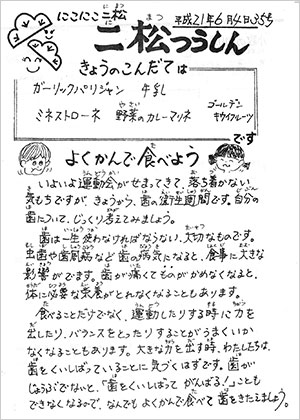 にこにこ二松
平成21年6月4日35号
二松つうしん
きょうのこんだては
ガーリックパリジャン 牛乳
ミネストローネ 野菜のカレーマリネ ゴールデンキウイフルーツ
です
よくかんで食べよう
いよいよ運動会がせまってきて、落ち着かない
気もちですが、きょうから、歯の衛生週間です。自分の
歯について、じっくり考えてみましょう。
歯は一生使わなければならない、大切なものです。
虫歯や歯周病など歯の病気になると、食事に大きな
影響がでます。歯が痛くてものがかめなくなると、
体に必要な栄養がとれなくなることもあります。
食べることだけでなく、運動したりする時に力を
出したり、バランスをとったりすることがうまくいか
なくなることもあります。大きな力を出す時、わたしたちは、
歯をくいしばっていることに気づくはずです。歯が
じょうぶでないと、「歯をくいしばってがんばる！」ことも
できなくなるので、なんでもよくかんで食べて歯をきたえましょう。